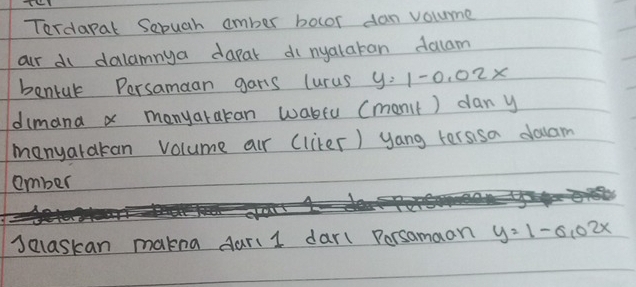 Terdapat Sebuah ember bocor dan volume
air di dalamnya dapat di nyatakan dalam
bentuk Persamaan garis lurus y = 1 - 0.02x
dimana x menyatakan waktu (menit) dan y
menyatakan volume air (liter) yang tersisa dalam
ember
Jelaskan makna dari 1 dari Persamaan y = 1 - 0,02x